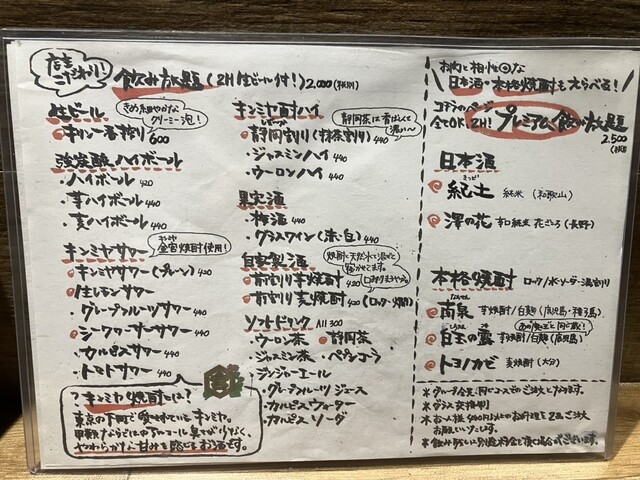 店主こだわり!
飲み放題(2H生ビール付!) 2,000(税別)
生ビール
きめ細やかなクリーミー泡!
キリン一番搾り 600
強炭酸ハイボール
・ハイボール 420
・芋ハイボール 440
・麦ハイボール 440
キンミヤサワー
キンミヤ
金宮焼酎使用!
キンミヤサワー(プレーン) 420
生レモンサワー 440
・グレープフルーツサワー 440
シークワーサーサワー 440
・カルピスサワー 440
・トマトサワー 440
?キンミヤ焼酎とは?
東京の下町で愛されているキンミヤ。
やわらかな甘みを感じるお酒です。
キンミヤ酎ハイ
静岡茶は香ばしくて濃い〜
静岡割り(抹茶割り) 440
・ジャスミンハイ 440
・ウーロンハイ 440
果実酒
・梅酒 440
・グラスワイン(赤・白) 440
自家製酒
前割り芋焼酎 420
前割り麦焼酎 420 (ロック・お燗)
ソフトドリンク All 300
・ウーロン茶 静岡茶
・ジャスミン茶 ・ペプシコーラ
・ジンジャーエール
・グレープフルーツジュース
・カルピスウォーター
・カルピスソーダ
お肉と相性◎な
日本酒・本格焼酎もえらべる!
コチラのページ
全てOK、2H! プレミアム飲み放題
2,500(税別)
日本酒
きっど
紀土 純米 (和歌山)
澤の花 辛口純米 花ごころ (長野)
本格焼酎 ロック/水/ソーダ・湯割り
南泉 芋焼酎/白麹 (鹿児島・種子島)
白玉の露 芋焼酎/白麹 (鹿児島)
・トヨノカゼ 麦焼酎 (大分)
*グループ全員、同じコースでのご注文となります。
*グラス交換制
*お一人様400円以上のお料理を2品ご注文
お願いいたします。
*飲み放題には別途料金を頂く場合がございます。